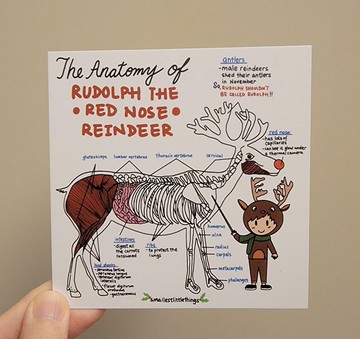 The Anatomy of
RUDOLPH THE
• RED NOSE •
REINDEER
antlers
- male reindeers
shed their antlers
in November
So, RUDOLPH SHOULDN'T
BE CALLED RUDOLPH!!
red nose
- has lots of
capillaries
- can see it glow under
a thermal camera
lumbar vertebrae
thoracic vertebrae
cervical
humerus
ulna
radius
carpals
metacarpals
phalanges
intestines
- digest all
the carrots
consumed
ribs
- to protect the
lungs
smallestlittlethings